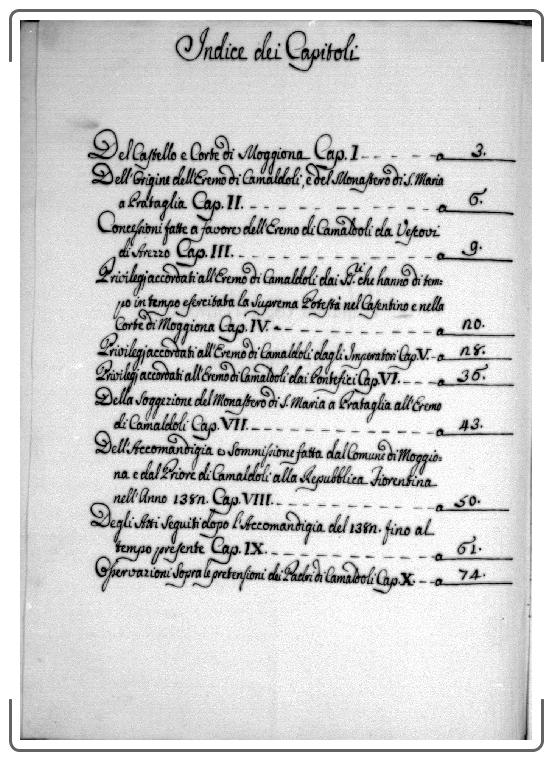 Indice dei Capitoli
Del Castello e Corte di Moggiona Cap. I - - - - a 3.
Dell'Origine dell'Eremo di Camaldoli, e del Monastero di S. Maria
a Prataglia Cap. II. - - - - a 6.
Concessioni fatte a favore dell'Eremo di Camaldoli da Vescovi
di Arezzo Cap. III. - - - - a 9.
Privilegj accordati all'Eremo di Camaldoli dai che hanno di tem=
po in tempo esercitata la Suprema Potestà nel Casentino e nella
Corte di Moggiona Cap. IV. - - - - a 20.
Privilegj accordati all'Eremo di Camaldoli dagli Imperatori Cap. V. - - a 28.
Privilegj accordati all'Eremo di Camaldoli dai Pontefici Cap. VI. - - - a 36.
Della Soggezione del Monastero di S. Maria a Prataglia all'Eremo
di Camaldoli Cap. VII. - - - - a 43.
Dell'Accomandigia e Sommissione fatta dal Comune di Moggio=
na e dal Priore di Camaldoli alla Repubblica Fiorentina
nell'Anno 1382. Cap. VIII. - - - - a 50.
Degli Atti Seguiti dopo l'Accomandigia del 1382. fino al
tempo presente Cap. IX. - - - - a 61.
Osservazioni Sopra le pretensioni dei Padri di Camaldoli Cap. X. - - a 74.